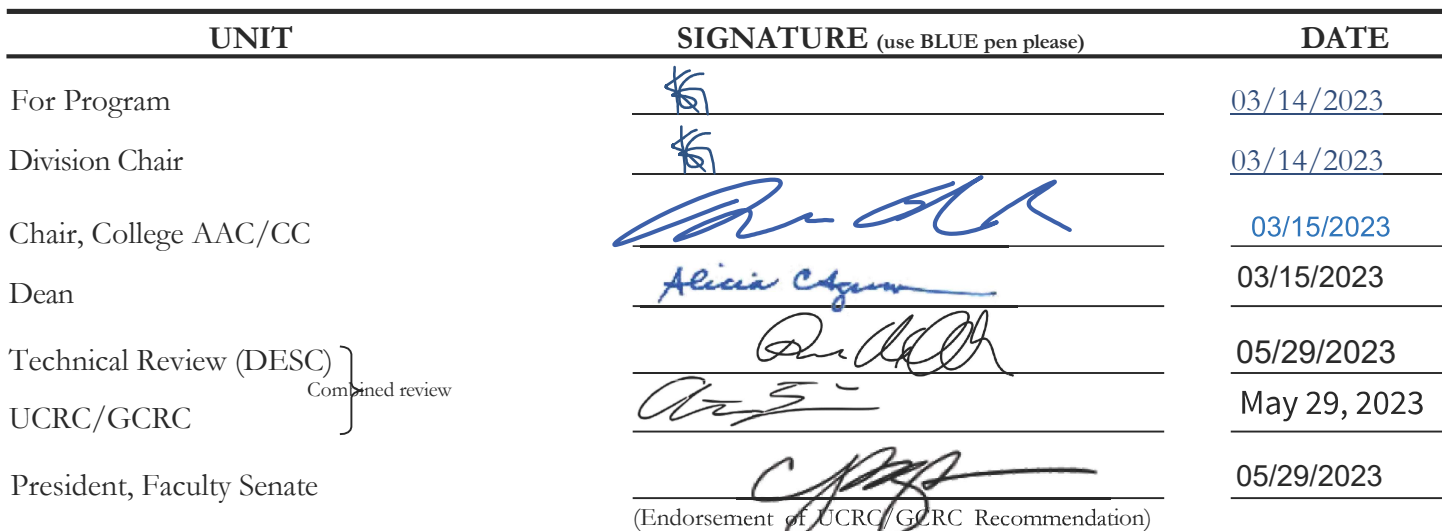 UNIT SIGNATURE (use BLUE pen please) DATE
For Program 03/14/2023
Division Chair 03/14/2023
Chair, College AAC/CC 03/15/2023
Dean Alicia C 03/15/2023
Technical Review (DESC) 05/29/2023
Combined review
UCRC/GCRC May 29, 2023
President, Faculty Senate 05/29/2023
(Endorsement of UCRC/GCRC Recommendation)